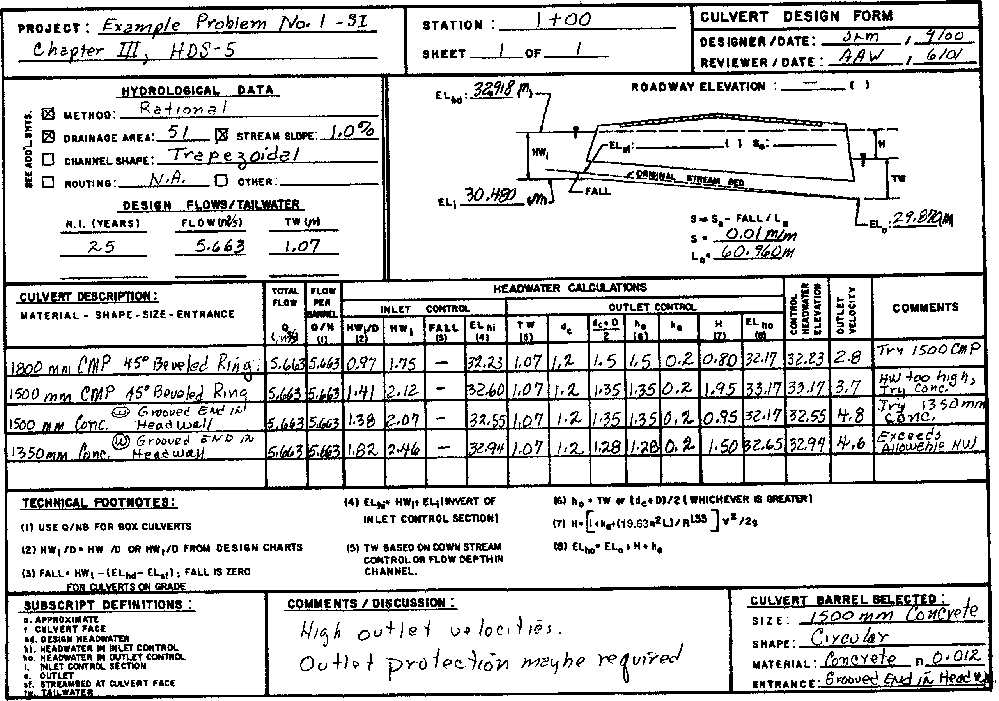 PROJECT: Example Problem No. 1 - SI
Chapter III, HDS-5
STATION: 1+00
SHEET 1 OF 1
CULVERT DESIGN FORM
DESIGNER/DATE: , 9/00
REVIEWER/DATE: AAW, 6/01
HYDROLOGICAL DATA
SEE ADD'L SHTS.
METHOD: Rational
DRAINAGE AREA: 51 STREAM SLOPE: 1.0%
CHANNEL SHAPE: Trapezoidal
ROUTING: N.A. OTHER:
DESIGN FLOWS/TAILWATER
R.I. (YEARS) FLOW(m³/s) TW (M)
25 5.663 1.07
ELhd: 32.918 m
ROADWAY ELEVATION: — ( )
HWi
ELsf: ( ) So:
H
TW
ORIGINAL STREAM BED
FALL
ELi 30.480 m
ELo: 29.870m
S = So - FALL / La
S = 0.01 m/m
La = 60.960m
CULVERT DESCRIPTION:
MATERIAL - SHAPE - SIZE - ENTRANCE
TOTAL FLOW Q
FLOW PER BARREL Q/N (1)
HEADWATER CALCULATIONS
INLET CONTROL
OUTLET CONTROL
HWi/D (2) HWi FALL (3) ELhi (4) TW (5) dc dc+D/2 ho (6) ke H (7) ELho (8)
CONTROL HEADWATER ELEVATION
OUTLET VELOCITY
COMMENTS
1800 mm CMP 45° Beveled Ring 5.663 5.663 0.97 1.75 — 32.23 1.07 1.2 1.5 1.5 0.2 0.80 32.17 32.23 2.8 Try 1500 CMP
1500 mm CMP 45° Beveled Ring 5.663 5.663 1.41 2.12 — 32.60 1.07 1.2 1.35 1.35 0.2 1.95 33.17 33.17 3.7 HW too high, Try Conc.
1500 mm Conc. Grooved End in Headwall 5.663 5.663 1.38 2.07 — 32.55 1.07 1.2 1.35 1.35 0.2 0.95 32.17 32.55 4.8 Try 1350 mm Conc.
1350mm Conc. Grooved END in Headwall 5.663 5.663 1.82 2.46 — 32.94 1.07 1.2 1.28 1.28 0.2 1.50 32.65 32.94 4.6 Exceeds Allowable HW
TECHNICAL FOOTNOTES:
(1) USE Q/NB FOR BOX CULVERTS
(2) HWi/D = HW /D OR HWi/D FROM DESIGN CHARTS
(3) FALL = HWi - (ELhd - ELsf); FALL IS ZERO
FOR CULVERTS ON GRADE
(4) ELhi = HWi + ELi(INVERT OF
INLET CONTROL SECTION)
(5) TW BASED ON DOWN STREAM
CONTROL OR FLOW DEPTH IN
CHANNEL.
(6) ho = TW or (dc + D)/2 (WHICHEVER IS GREATER)
(7) H = [1 + ke + (19.63 n² L) / R^1.33] V² / 2g
(8) ELho = ELo + H + ho
SUBSCRIPT DEFINITIONS:
a. APPROXIMATE
f CULVERT FACE
hd. DESIGN HEADWATER
hi. HEADWATER IN INLET CONTROL
ho. HEADWATER IN OUTLET CONTROL
i. INLET CONTROL SECTION
o. OUTLET
sf. STREAMBED AT CULVERT FACE
tw. TAILWATER
COMMENTS / DISCUSSION:
High outlet velocities.
Outlet protection maybe required
CULVERT BARREL SELECTED:
SIZE: 1500mm Concrete
SHAPE: Circular
MATERIAL: Concrete n 0.012
ENTRANCE: Grooved End in Headw